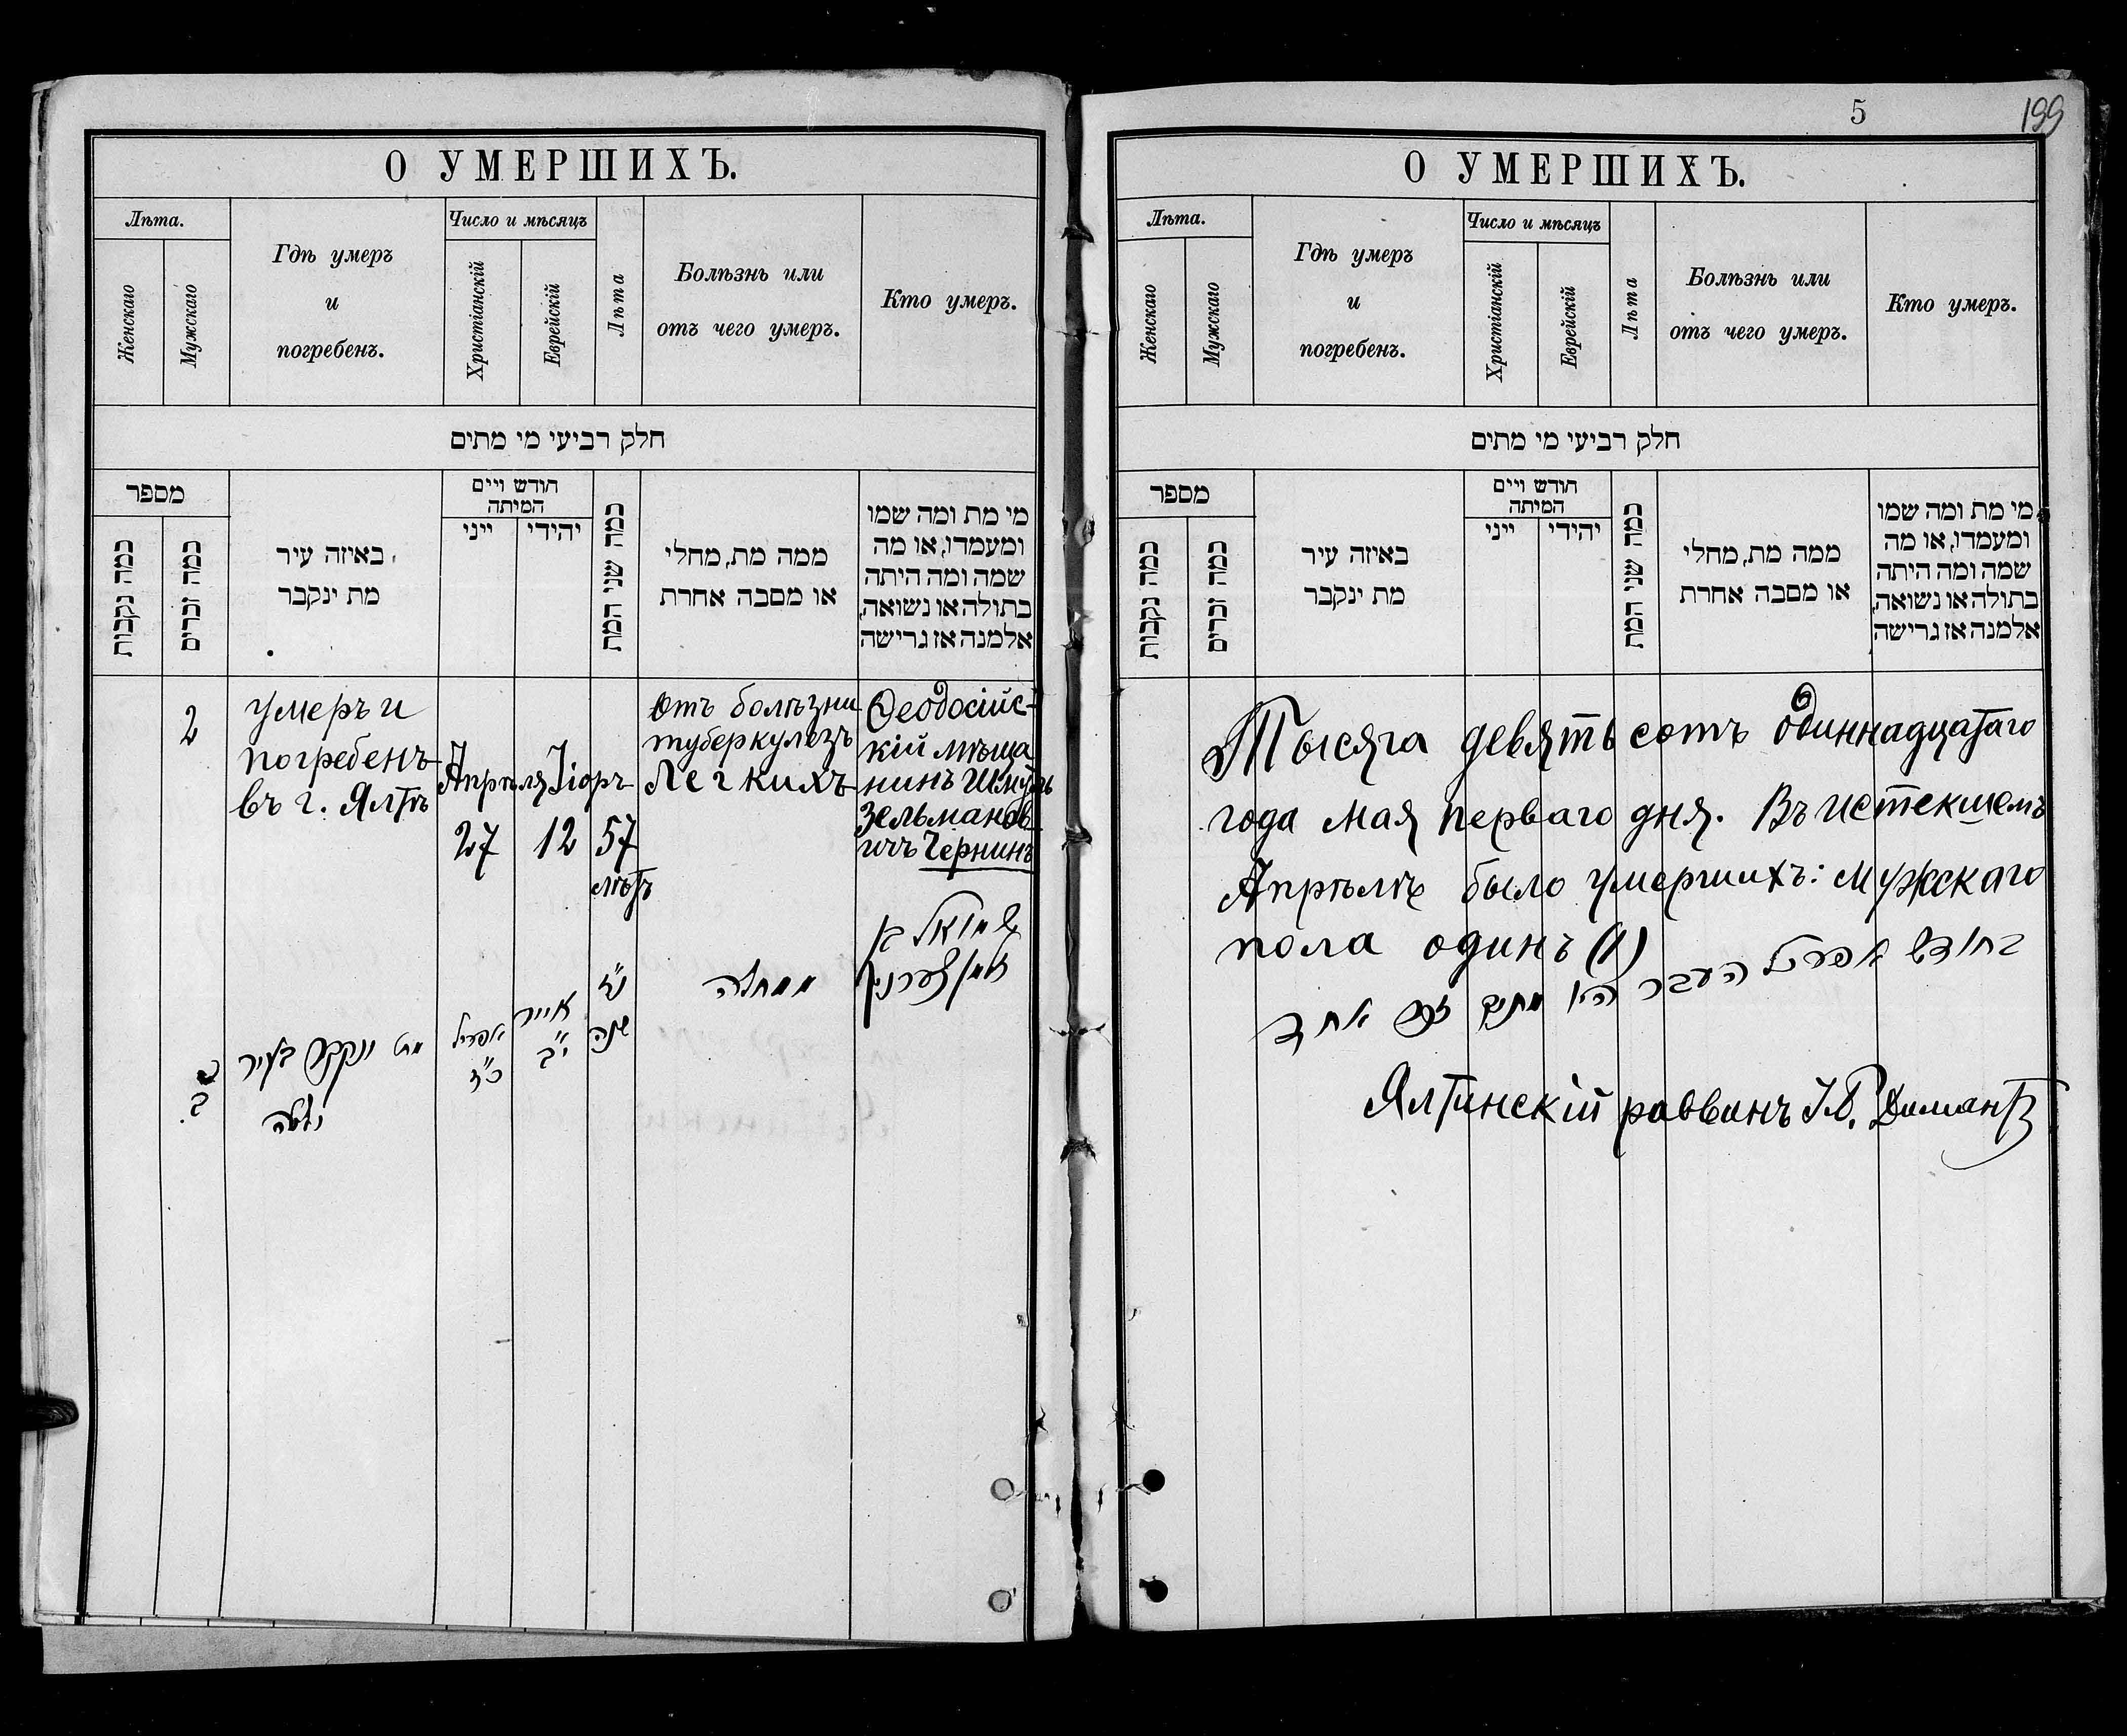 О УМЕРШИХЪ.
Лѣта.
Женскаго
Мужскаго
Гдѣ умеръ
и
погребенъ.
Число и мѣсяцъ
Христіанскій
Еврейскій
Лѣта
Болѣзнь или
отъ чего умеръ.
Кто умеръ.
חלק רביעי מי מתים
מספר
כמה נקבות
כמה זכרים
באיזה עיר
מת ינקבר
חודש ויים
המיתה
ייני
יהידי
כמה שני המת
ממה מת, מחלי
או מסבה אחרת
מי מת ומה שמו
ומעמדו, או מה
שמה ומה היתה
בתולה או נשואה,
אלמנה אז גרישה
2
умеръ и
погребенъ
въ г. Ялтѣ
Апрѣля
27
Ііоръ
12
57
лѣтъ
Отъ болѣзни
туберкулезъ
Легкихъ
Ѳеодосійс-
кій мѣща
нинъ Шмуль
Зельманов
ичъ Чернинъ
שמואל בן
זלמן צערנין
ממחלה
נ״ז
שנה
אייר
י״ב
אפריל
כ״ז
מת ונקבר בעיר
יאלטה
ב.
5
199
О УМЕРШИХЪ.
Лѣта.
Женскаго
Мужскаго
Гдѣ умеръ
и
погребенъ.
Число и мѣсяцъ
Христіанскій
Еврейскій
Лѣта
Болѣзнь или
отъ чего умеръ.
Кто умеръ.
חלק רביעי מי מתים
מספר
כמה נקבות
כמה זכרים
באיזה עיר
מת ינקבר
חודש ויים
המיתה
ייני
יהידי
כמה שני המת
ממה מת, מחלי
או מסבה אחרת
מי מת ומה שמו
ומעמדו, או מה
שמה ומה היתה
בתולה או נשואה,
אלמנה אז גרישה
Тысяча девять сотъ одиннадцатаго
года мая перваго дня. Въ истекшемъ
Апрѣлѣ было умершихъ: мужскаго
пола одинъ (1)
בחודש אפריל העבר היו מתים זכר אחד
Ялтинскій раввинъ Димантъ